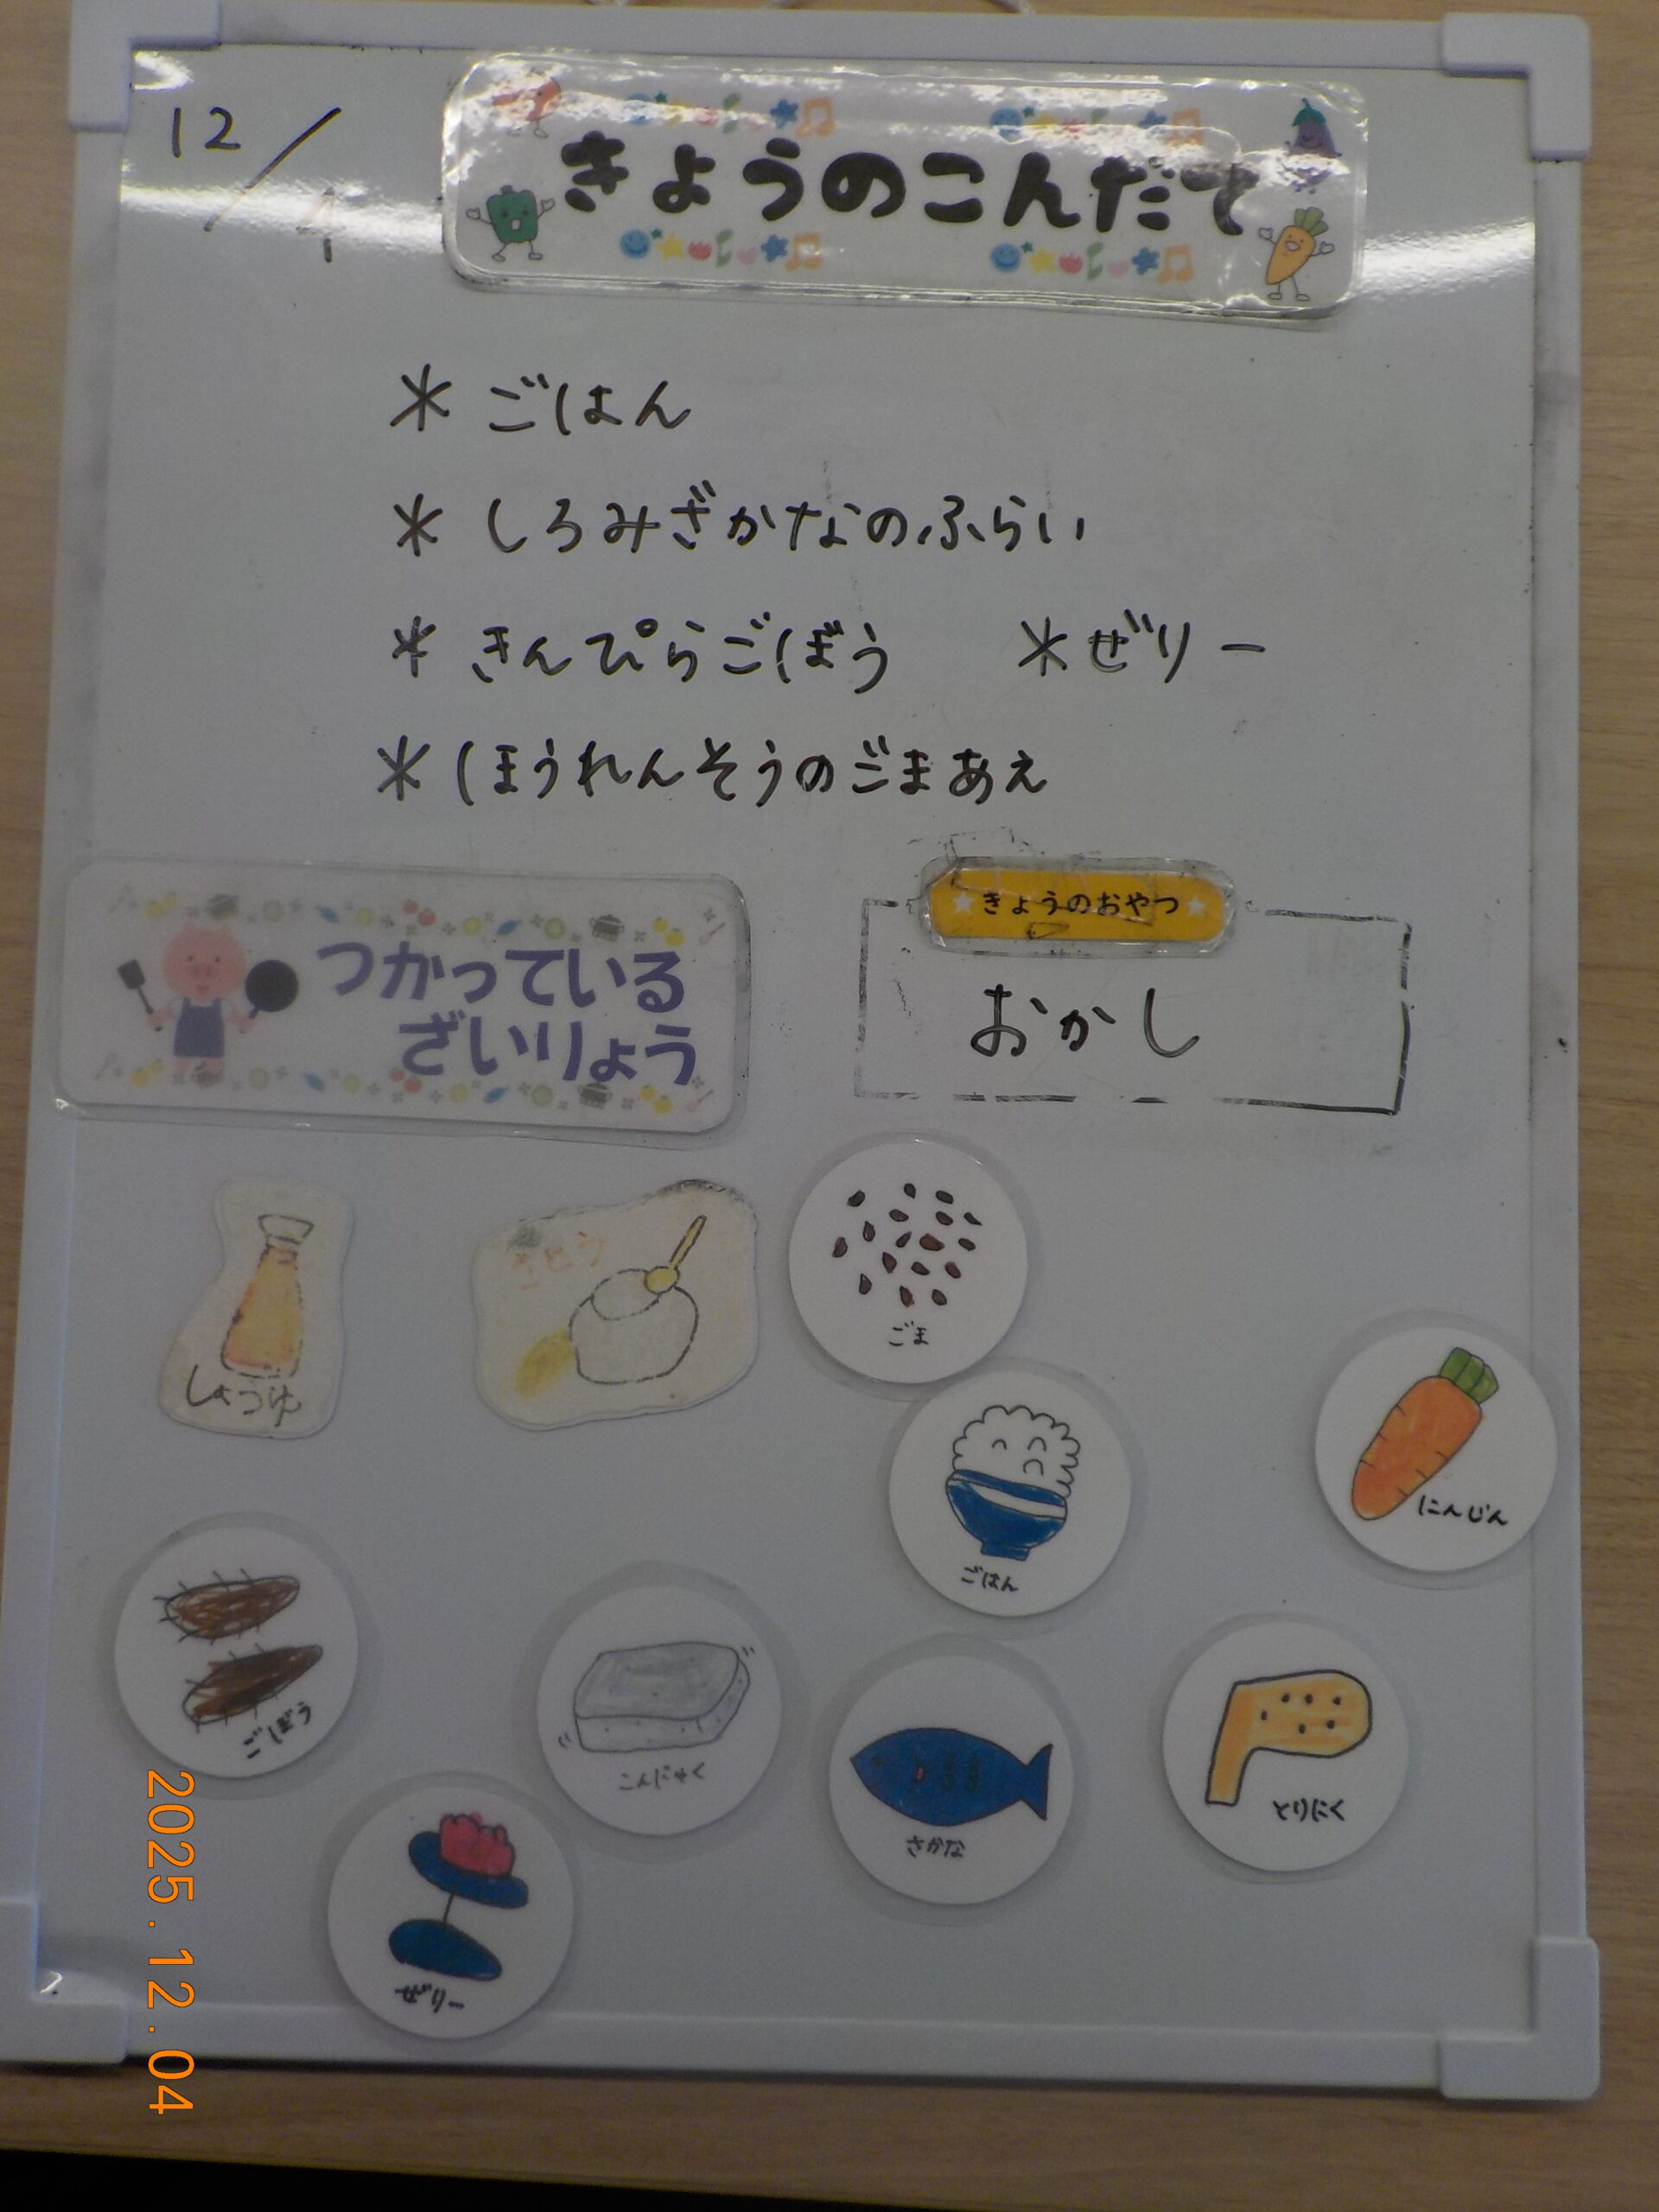 12/4
きょうのこんだて
* ごはん
* しろみざかなのふらい
* きんぴらごぼう * ぜりー
* ほうれんそうのごまあえ
つかっている
ざいりょう
★きょうのおやつ★
おかし
しょうゆ
さとう
ごま
ごはん
にんじん
ごぼう
こんにゃく
さかな
とりにく
ぜりー
2025.12.04